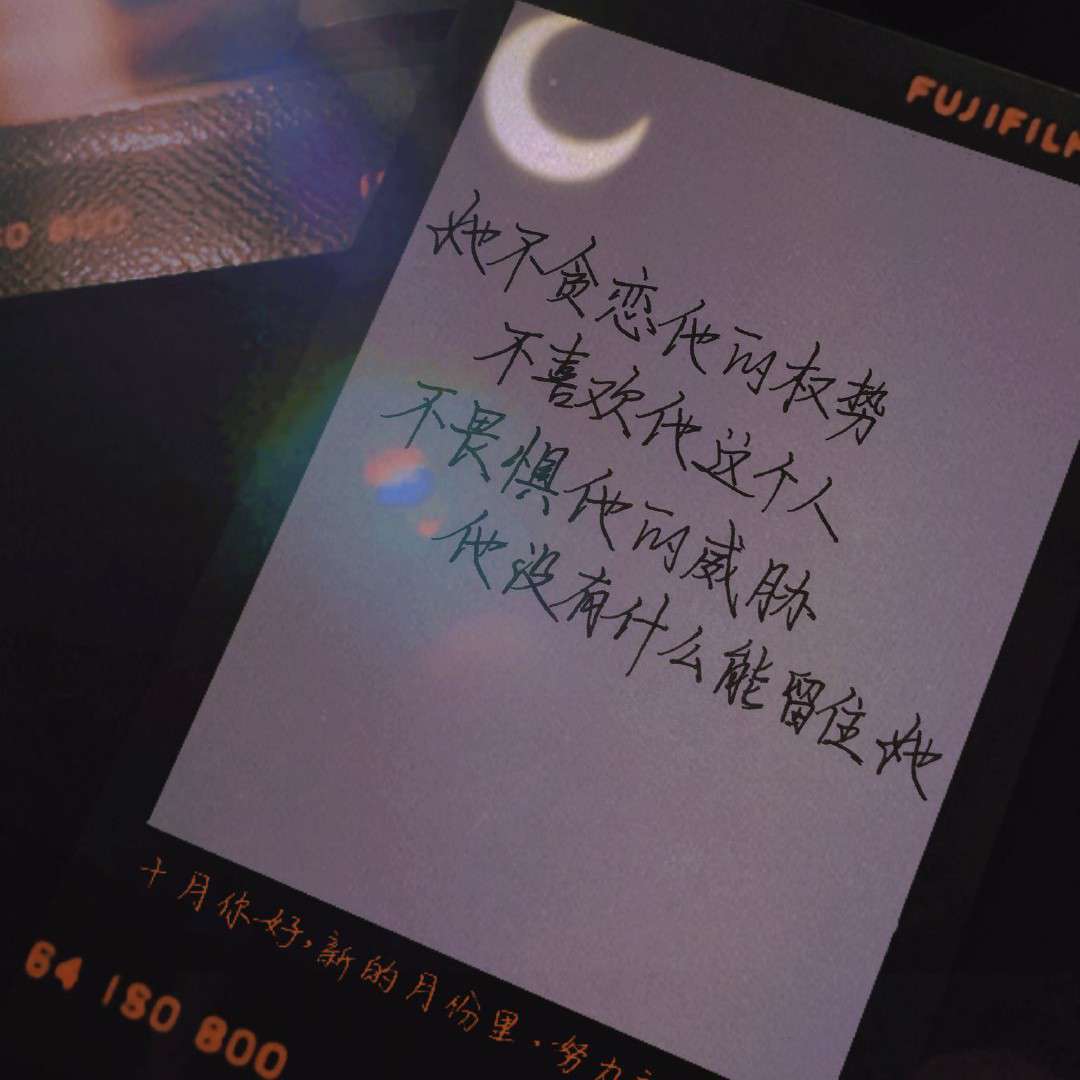 FUJIFILM
她不贪恋他的权势
不喜欢他这个人
不畏惧他的威胁
他没有什么能留住她
十月你好,新的月份里、努力
64 ISO 800